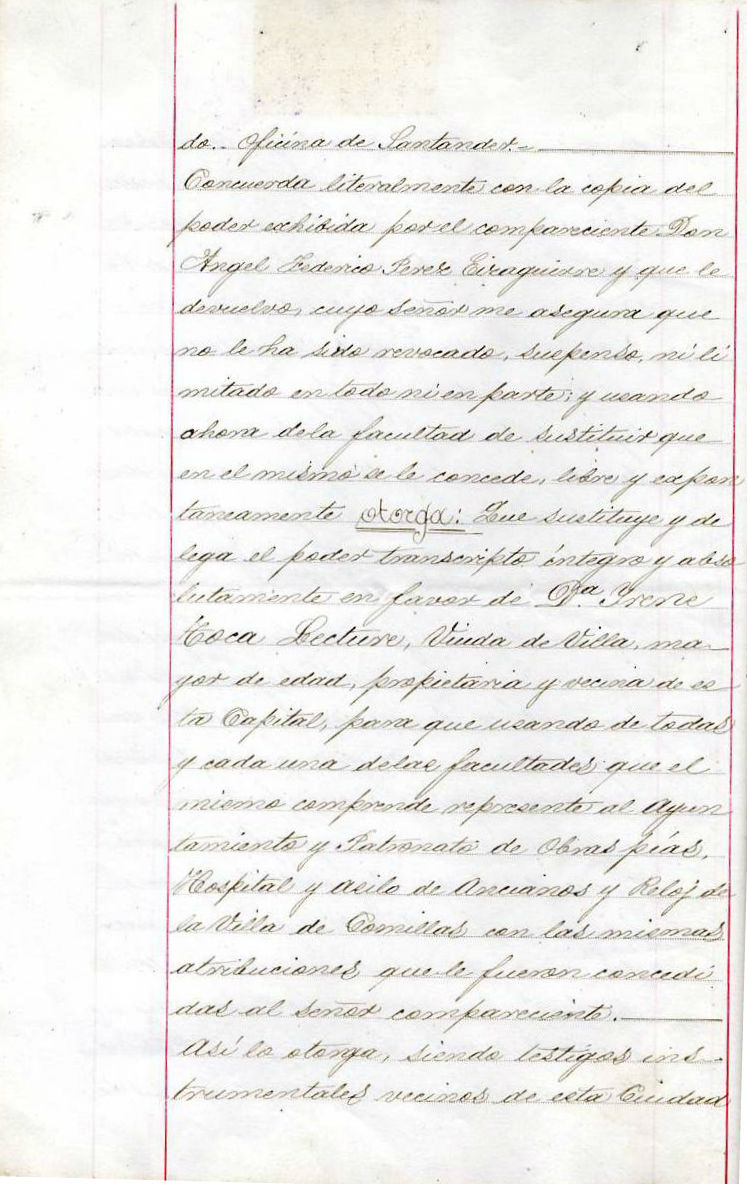 do.- Oficina de Santander.=
Concuerda literalmente con la copia del
poder exhibida por el compareciente Don
Ángel Federico Perez Eizaguirre y que le
devuelvo, cuyo señor me asegura que
no le ha sido revocado, suspenso, ni li
mitado en todo ni en parte; y usando
ahora de la facultad de sustituir que
en el mismo se le concede, libre y expon
táneamente otorga: Que sustituye y de
lega el poder transcripto íntegro y abso
lutamente en favor de Dª. Irene
Toca Lecture, Viuda de Villa, ma-
yor de edad, propietaria y vecina de es
ta Capital, para que usando de todas
y cada una de las facultades que el
mismo comprende represente al Ayun
tamiento y Patronato de Obras pías,
Hospital y asilo de Ancianos y Reloj de
la Villa de Comillas con las mismas
atribuciones que le fueron concedi
das al señor compareciente.
Así lo otorga, siendo testigos ins-
trumentales vecinos de esta Ciudad